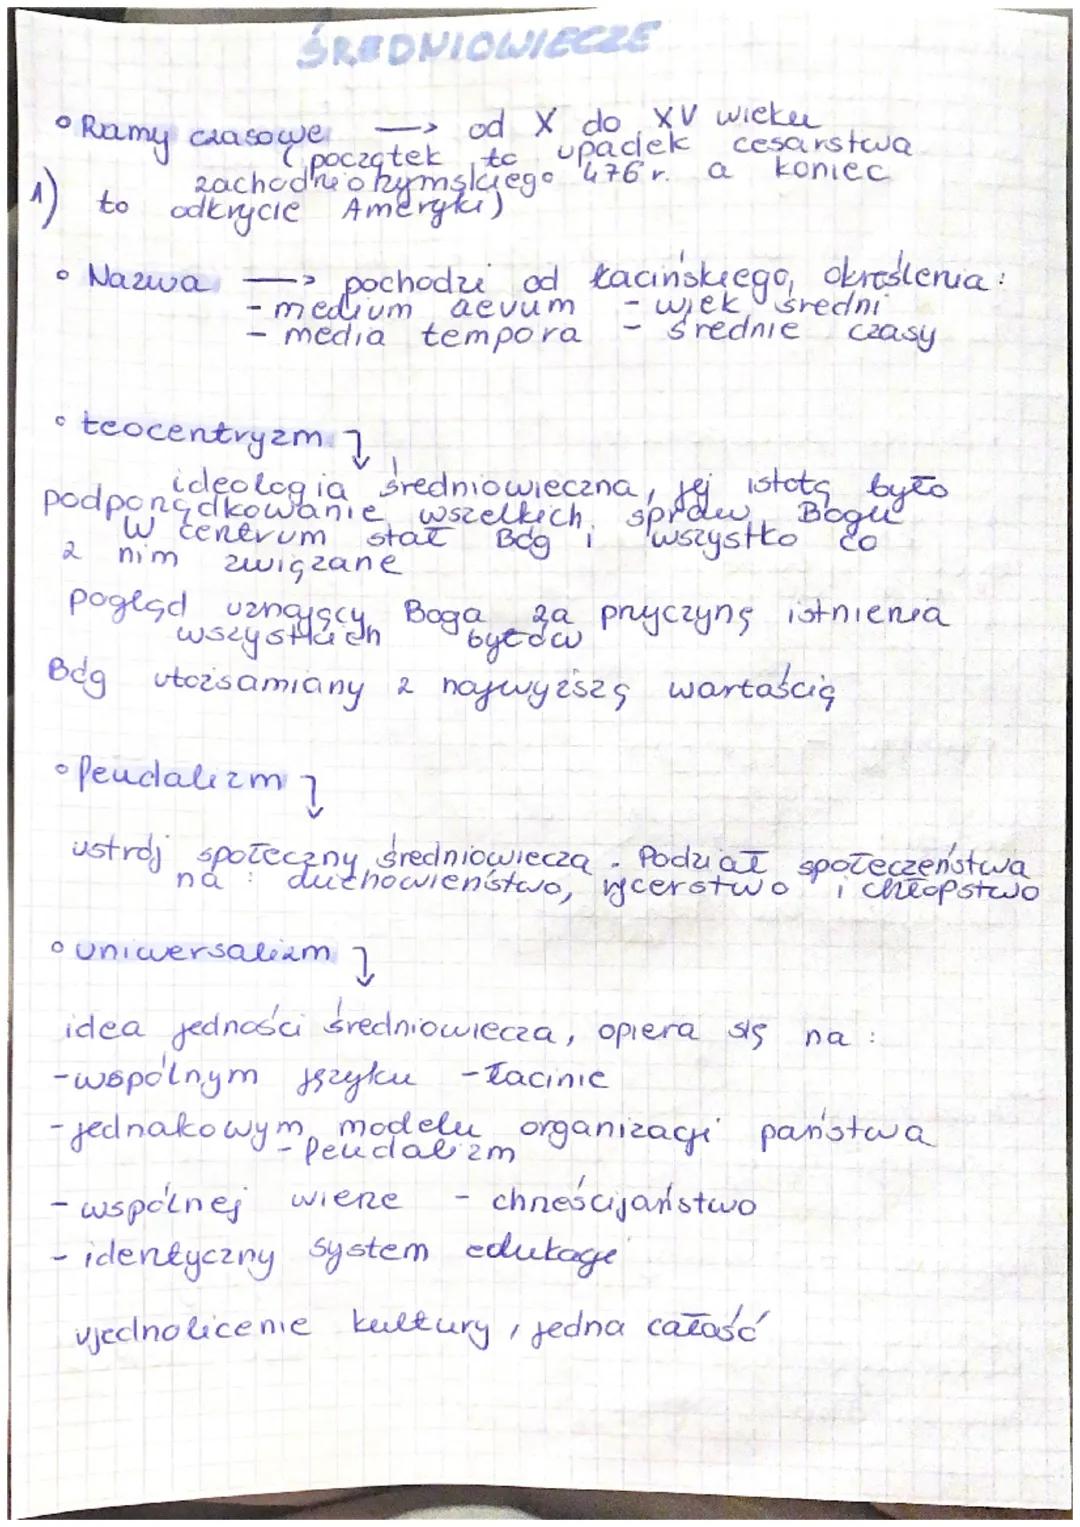 ŚREDNIOWIECZE
• Ramy czasowe → od X do XV wieku
(początek to upadek cesarstwa
zachodniorzymskiego 476 r. a koniec
1) to odkrycie Ameryki)
• Nazwa → pochodzi od łacińskiego określenia:
- medium aevum - wiek średni
- media tempora - średnie czasy
• teocentryzm
ideologia średniowieczna, jej istotą było
podporządkowanie wszelkich spraw Bogu
W centrum stał Bóg i wszystko co
z nim związane
pogląd uznający Boga za przyczynę istnienia
wszystkich bytów
Bóg utożsamiany z najwyższą wartością
• feudalizm
ustrój społeczny średniowiecza. Podział społeczeństwa
na: duchowieństwo, rycerstwo i chłopstwo
• uniwersalizm
idea jedności średniowiecza, opiera się na:
- wspólnym języku - łacinie
- jednakowym modelu organizacji państwa
- feudalizm
- wspólnej wierze - chrześcijaństwo
- identyczny system edukacji
ujednolicenie kultury, jedna całość